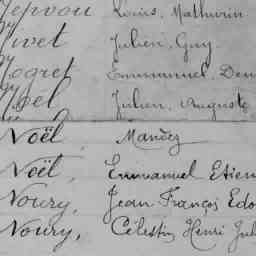 Louis, Mathurin
Nivet Julien, Guy
Nogret Emmanuel, Den
Noël Julien, Auguste
Noël, Mandez
Noël, Emmanuel Etien
Noury, Jean François Edo
Noury, Célestin Henri Jul